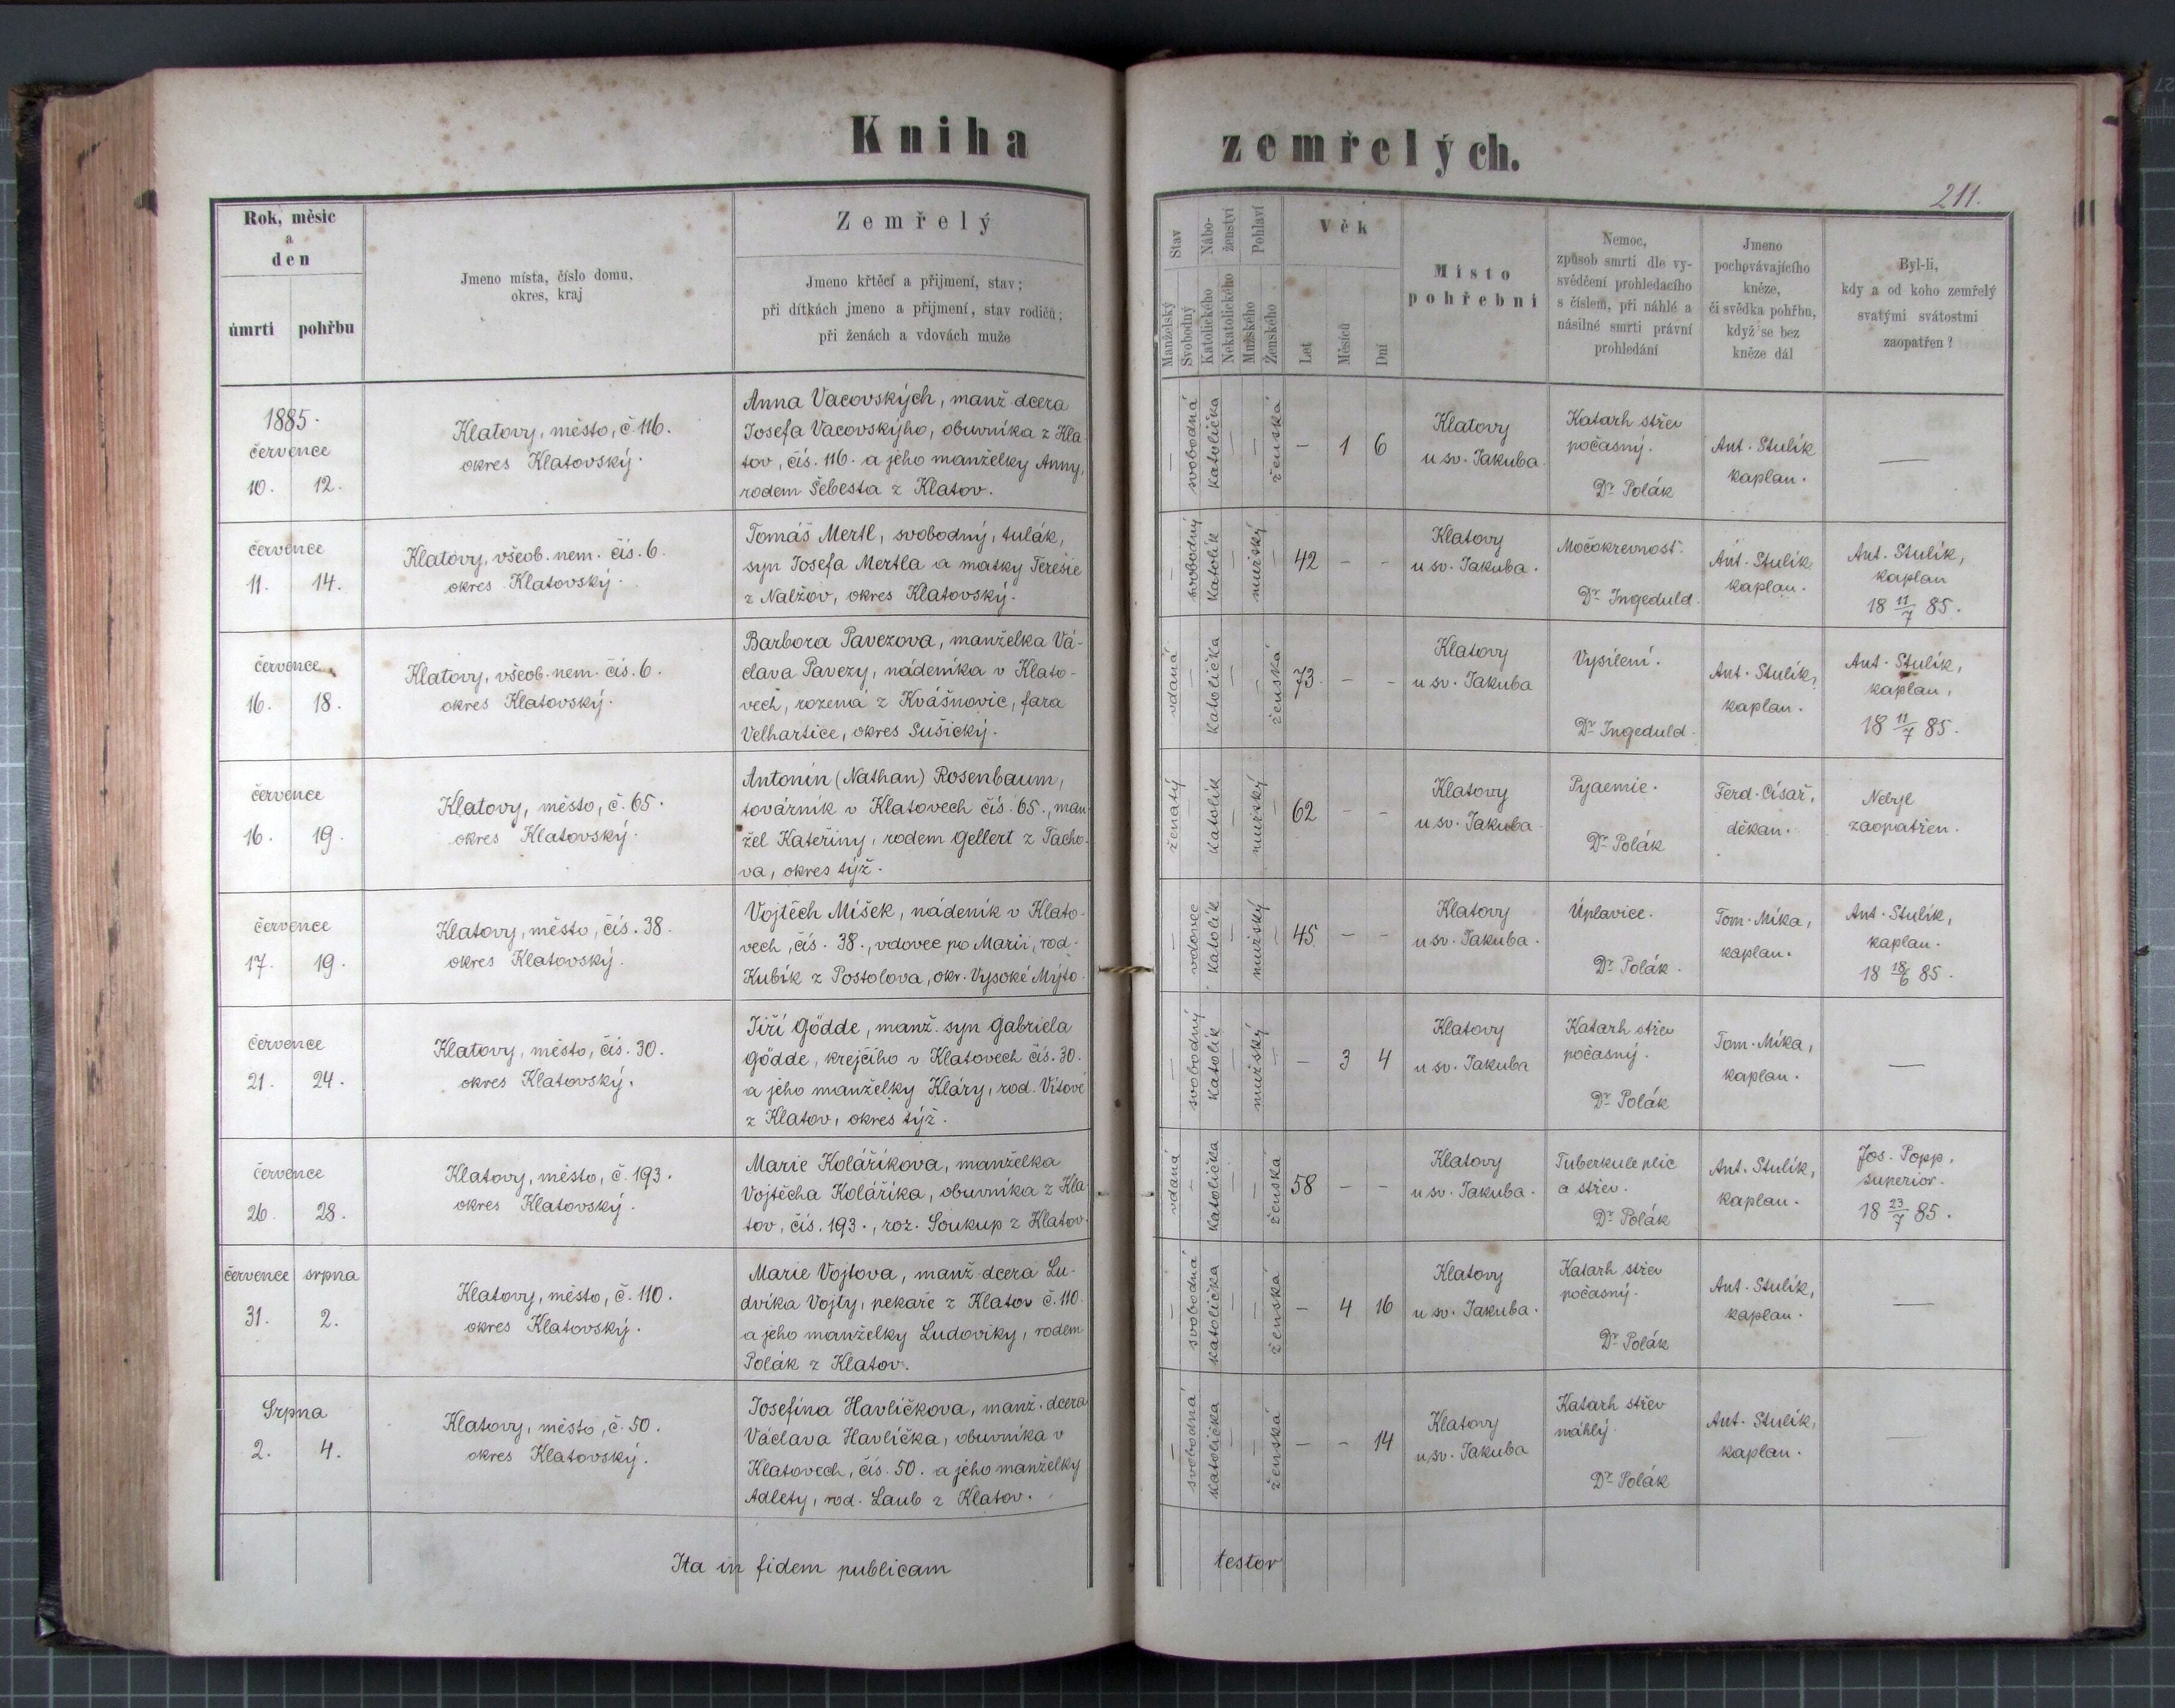 Kniha zemřelých.
211.
Rok, měsíc
a
den
úmrtí pohřbu
Jmeno místa, číslo domu,
okres, kraj
Zemřelý
Jmeno křtěcí a příjmení, stav;
při dítkách jmeno a příjmení, stav rodičů;
při ženách a vdovách muže
Stav
Manželský
Svobodný
Nábo-
ženství
Katolického
Nekatolického
Pohlaví
Mužského
Ženského
Věk
Let
Měsíců
Dní
Místo
pohřební
Nemoc,
způsob smrti dle vy-
svědčení prohledacího
s číslem, při náhlé a
násilné smrti právní
prohledání
Jmeno
pochovávajícího
kněze,
či svědka pohřbu,
když se bez
kněze dál
Byl-li,
kdy a od koho zemřelý
svatými svátostmi
zaopatřen?
1885.
července
10. 12.
Klatovy, město, č. 116.
okres Klatovský.
Anna Vacovských, manž. dcera
Josefa Vacovskýho, obuvníka z Kla-
tov, čís. 116. a jeho manželky Anny,
rodem Šebesta z Klatov.
— svobodná katolička — — ženská
— 1 6
Klatovy
u sv. Jakuba.
Katarh střev
počasný.
Dr. Polák
Ant. Stulík
kaplan.
—
července
11. 14.
Klatovy, všeob. nem. čís. 6.
okres Klatovský.
Tomáš Mertl, svobodný, tulák,
syn Josefa Mertla a matky Teresie
z Nalžov, okres Klatovský.
— svobodný katolík — mužský —
42 - -
Klatovy
u sv. Jakuba.
Močokrevnost.
Dr. Ingeduld.
Ant. Stulík
kaplan.
Ant. Stulík,
kaplan
18 11/7 85.
července
16. 18.
Klatovy, všeob. nem. čís. 6.
okres Klatovský.
Barbora Pavezova, manželka Vá-
clava Pavezy, nádeníka v Klato-
vech, rozená z Kvášňovic, fara
Velhartice, okres Sušický.
vdaná — katolička — — ženská
73. - -
Klatovy
u sv. Jakuba
Vysílení.
Dr. Ingeduld.
Ant. Stulík,
kaplan.
Ant. Stulík,
kaplan,
18 11/7 85.
července
16. 19.
Klatovy, město, č. 65.
okres Klatovský.
Antonín (Nathan) Rosenbaum,
továrník v Klatovech čís. 65., man-
žel Kateřiny, rodem Gellert z Tacho-
va, okres týž.
ženatý — katolík — mužský —
62 - -
Klatovy
u sv. Jakuba.
Pyaemie.
Dr. Polák
Ferd. Císař,
děkan.
Nebyl
zaopatřen.
července
17. 19.
Klatovy, město, čís. 38.
okres Klatovský.
Vojtěch Míšek, nádeník v Klato-
vech, čís. 38., vdovec po Marii, rod.
Kubík z Postolova, okr. Vysoké Mýto.
— vdovec katolík — mužský —
45 - -
Klatovy
u sv. Jakuba.
Úplavice.
Dr. Polák.
Tom. Míka,
kaplan.
Ant. Stulík,
kaplan.
18 18/6 85.
července
21. 24.
Klatovy, město, čís. 30.
okres Klatovský.
Jiří Gödde, manž. syn Gabriela
Gödde, krejčího v Klatovech čís. 30.
a jeho manželky Kláry, rod. Vítové
z Klatov, okres týž.
— svobodný katolík — mužský —
— 3 4
Klatovy
u sv. Jakuba
Katarh střev
počasný.
Dr. Polák
Tom. Míka,
kaplan.
—
července
26. 28.
Klatovy, město, č. 193.
okres Klatovský.
Marie Koláříkova, manželka
Vojtěcha Koláříka, obuvníka z Kla-
tov, čís. 193., roz. Soukup z Klatov.
vdaná — katolička — — ženská
58 - -
Klatovy
u sv. Jakuba.
Tuberkule plic
a střev.
Dr. Polák
Ant. Stulík,
kaplan.
Jos. Popp,
superior.
18 23/7 85.
července srpna
31. 2.
Klatovy, město, č. 110.
okres Klatovský.
Marie Vojtova, manž. dcera Lu-
dvíka Vojty, pekaře z Klatov č. 110.
a jeho manželky Ludoviky, rodem
Polák z Klatov.
— svobodná katolička — — ženská
— 4 16
Klatovy
u sv. Jakuba.
Katarh střev
počasný.
Dr. Polák
Ant. Stulík,
kaplan.
—
Srpna
2. 4.
Klatovy, město, č. 50.
okres Klatovský.
Josefina Havlíčkova, manž. dcera
Václava Havlíčka, obuvníka v
Klatovech, čís. 50. a jeho manželky
Adlety, rod. Laub z Klatov.
— svobodná katolička — — ženská
— - 14
Klatovy
u sv. Jakuba
Katarh střev
náhlý.
Dr. Polák
Ant. Stulík,
kaplan.
—
Ita in fidem publicam testor